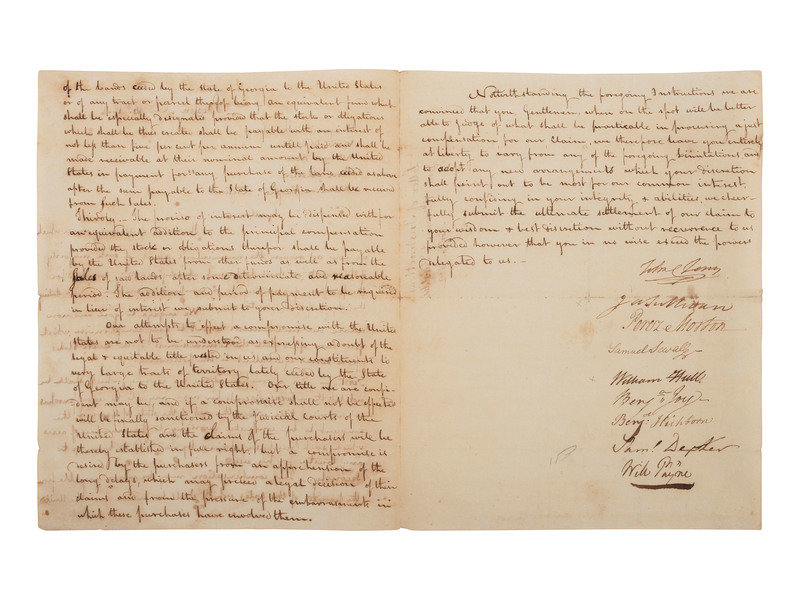 of the Lands ceded by the State of Georgia to the United States
or of any tract or parcel thereof being an equivalent fund which
shall be especially designated provided that the stocks or obligations
which shall be thus created shall be payable with an interest of
not less than five per cent per annum untill paid and shall be
made receivable at their nominal amount by the United
States in payment for any purchase of the Lands ceded as above
after the sum payable to the State of Georgia shall be received
from such sales.
Thirdly — The proviso of interest may be dispensed with for
an equivalent addition to the principal compensation
provided the stocks or obligations therefor shall be payable
by the United States from other funds as well as from the
sales of said lands, after some determinate and reasonable
period: The addition and period of payment to be required
in lieu of interest we submit to your discretion.
Our attempts to effect a compromise with the United
States are not to be understood as expressing a doubt of the
legal & equitable title vested in us and our constituents to
very large tracts of territory lately ceded by the State
of Georgia to the United States. Our title we are confi-
dent may be, and if a compromise shall not be effected
will be finally sanctioned by the Judicial Courts of the
United States and the claims of the purchasers will be
thereby established in full right, but a compromise is
desired by the purchasers from an apprehension of the
long delays, which may precede a legal decision of their
claims and from the pressure of the embarrassments in
which these purchases have involved them.
Notwithstanding the foregoing Instructions we are
convinced that you Gentlemen when on the spot will be better
able to Judge of what shall be practicable in procuring a just
compensation for our claim, we therefore leave you entirely
at liberty to vary from any of the foregoing limitations and
to adopt any new arrangements which your discretion
shall point out to be most for our common interest,
fully confiding in your integrity & abilities, we cheer-
fully submit the ultimate settlement of our claim to
your wisdom & best discretion without recurrence to us
provided however that you in no wise exceed the powers
delegated to us. —
John C Jones
Ja Sullivan
Perez Morton
Samuel Sewall
William Hull
Benjn Joy
Benjn Hichborn
Saml Dexter
Will Payne